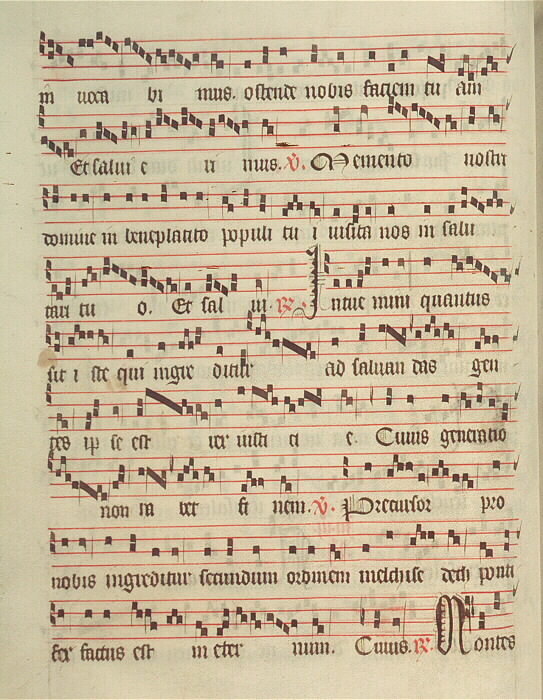 in uoca bi mus. ostende nobis faciem tu am
Et salui e ri mus. V̷. Memento nostri
domine in beneplacito populi tu i uisita nos in salu
tari tu o. Et sal ui. R̷. Intue mini quantus
sit i ste qui ingre ditur ad saluan das gen
tes ip se est rex iusti ci e. Cuius generatio
non ha bet fi nem. V̷. Precursor pro
nobis ingreditur secundum ordinem melchise dech ponti
fex factus est in eter num. Cuius. R̷. Montes